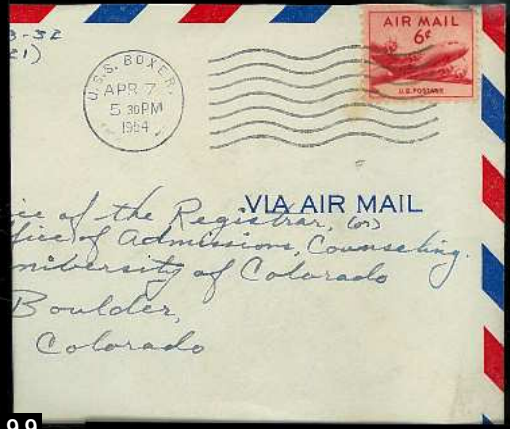 3-32
21)
U.S.S. BOXER.
APR 7
5 30PM
1954
AIR MAIL
6¢
U.S. POSTAGE
VIA AIR MAIL
ice of the Registrar, (or)
ffice of Admissions, Counseling.
niversity of Colorado
Boulder,
Colorado
99